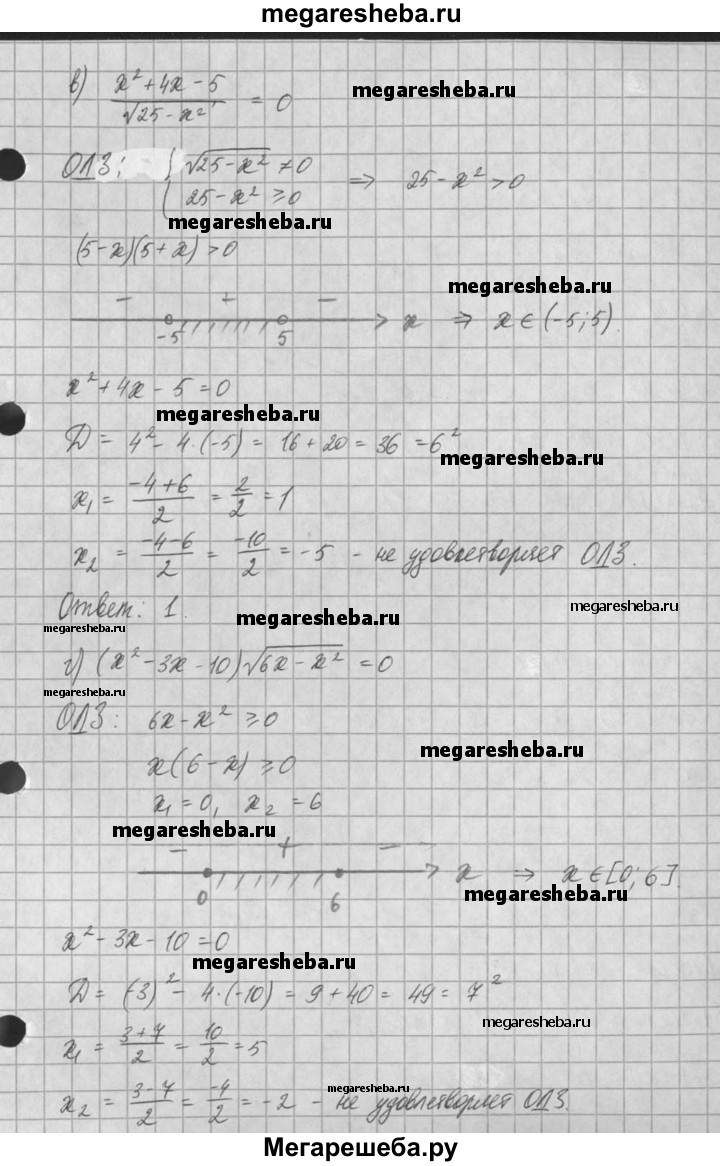 megaresheba.ru
в) (x² + 4x - 5) / √(25 - x²) = 0
megaresheba.ru
ОДЗ: { √(25 - x²) ≠ 0
{ 25 - x² ≥ 0 ⇒ 25 - x² > 0
megaresheba.ru
(5 - x)(5 + x) > 0
megaresheba.ru
- + -
-5 5 x ⇒ x ∈ (-5; 5).
x² + 4x - 5 = 0
megaresheba.ru
D = 4² - 4·(-5) = 16 + 20 = 36 = 6²
megaresheba.ru
x₁ = (-4 + 6) / 2 = 2/2 = 1
x₂ = (-4 - 6) / 2 = -10/2 = -5 - не удовлетворяет ОДЗ.
Ответ: 1.
megaresheba.ru
megaresheba.ru
megaresheba.ru
г) (x² - 3x - 10)√(6x - x²) = 0
megaresheba.ru
ОДЗ: 6x - x² ≥ 0
megaresheba.ru
x(6 - x) ≥ 0
x₁ = 0, x₂ = 6
megaresheba.ru
- + -
0 6 x ⇒ x ∈ [0; 6].
megaresheba.ru
x² - 3x - 10 = 0
megaresheba.ru
D = (-3)² - 4·(-10) = 9 + 40 = 49 = 7²
megaresheba.ru
x₁ = (3 + 7) / 2 = 10/2 = 5
megaresheba.ru
x₂ = (3 - 7) / 2 = -4/2 = -2 - не удовлетворяет ОДЗ.
Мегарешеба.ру